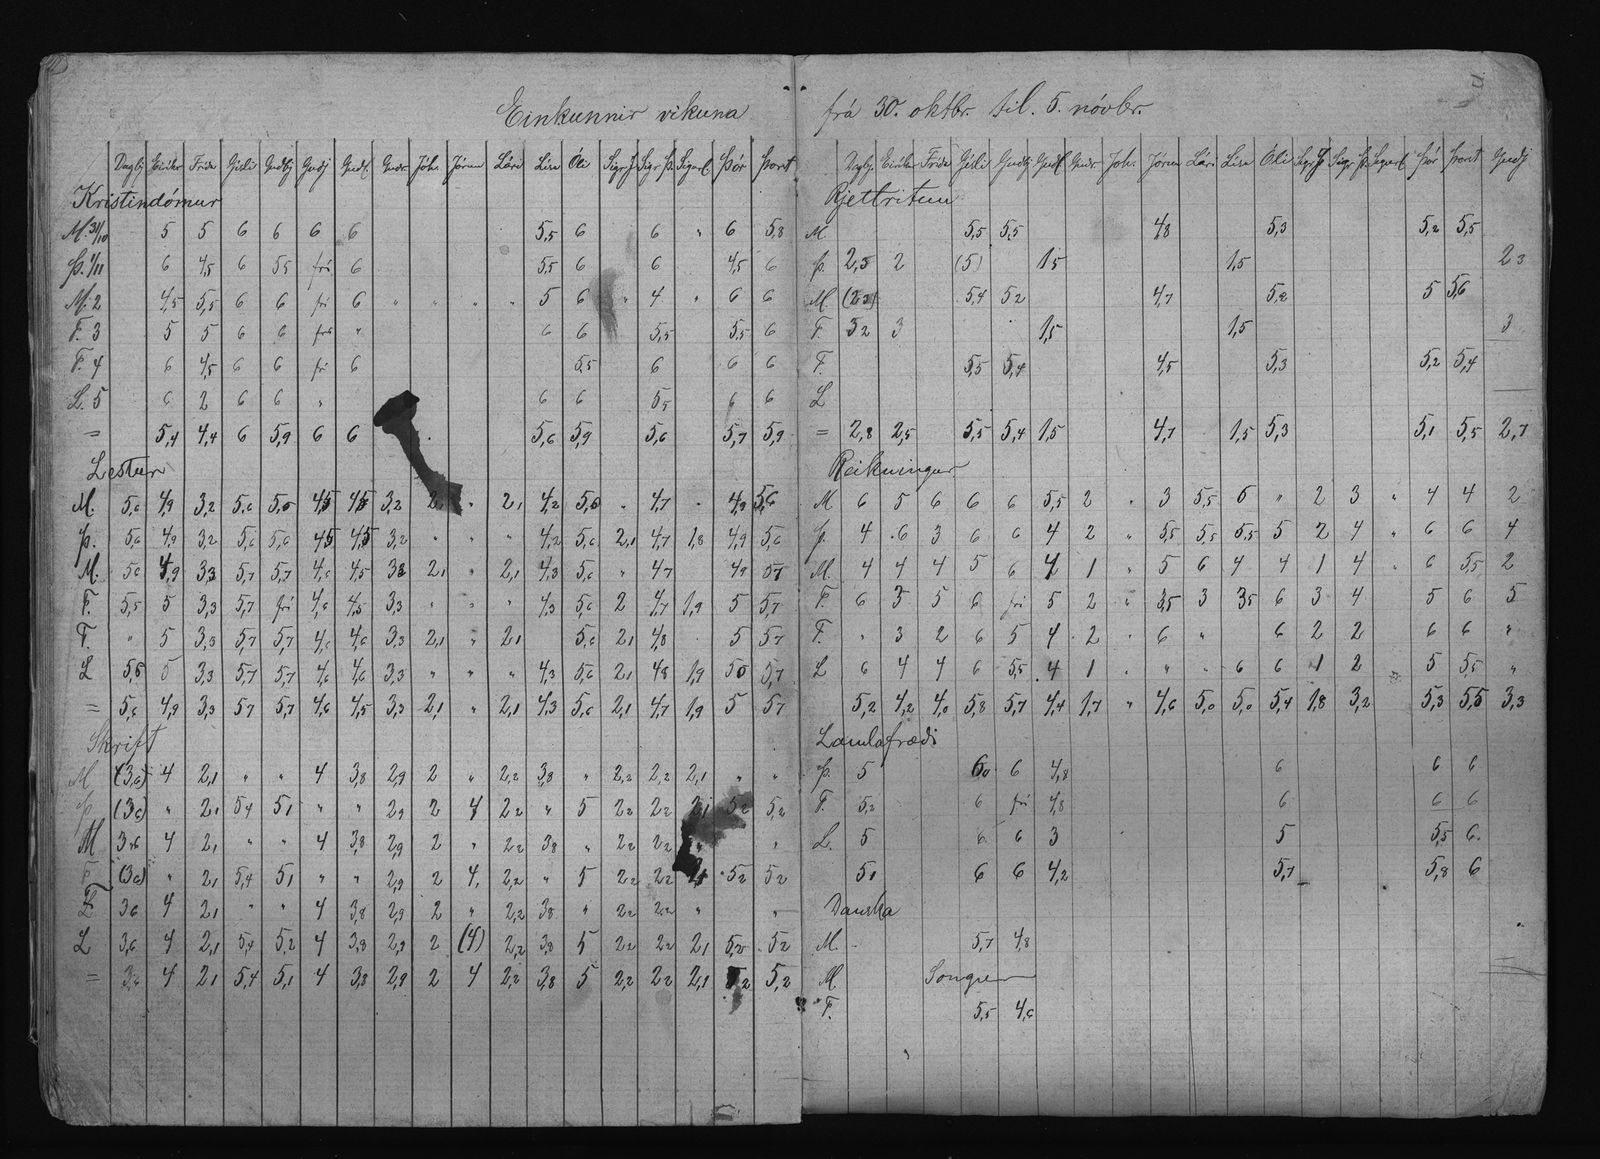 Einkunnir vikuna
Dagbj Eirikur Frida Gisli Gudbj Gudj Gudl. Gudr. Jóh. Jórun Lári Lisa Óli Sigr J Sigr Þ. Sigurl. Þór Þorst
Kristindómur
M. 31/10 5 5 6 6 6 6 5,5 6 6 " 6 5,8
Þ. 1/11 6 4,5 6 5,5 frí 6 5,5 6 6 4,5 6
M. 2 4,5 5,5 6 6 frí 6 " " " " 5 6 " 4 " 6 6
F. 3 5 5 6 6 frí " 6 6 5,5 5,5 6
F. 4 6 4,5 6 6 frí 6 5,5 6 6 6
L. 5 6 2 6 6 " 6 6 5,5 6 6
= 5,4 4,4 6 5,9 6 6 5,6 5,9 5,6 5,7 5,9
Lestur
M. 5,6 4,9 3,2 5,6 5,6 4,5 4,5 3,2 2,1 " 2,1 4,2 5,6 " 4,7 - 4,9 5,6
Þ. 5,6 4,9 3,2 5,6 5,6 4,5 4,5 3,2 " " " 4,2 5,6 2,1 4,7 1,8 4,9 5,6
M. 5,6 4,9 3,3 5,7 5,7 4,6 4,5 3,3 2,1 " 2,1 4,3 5,6 " 4,7 4,9 5,7
F. 5,5 5 3,3 5,7 frí 4,6 4,5 3,3 " " " 4,3 5,6 2 4,7 1,9 5 5,7
F. " 5 3,3 5,7 5,7 4,6 4,6 3,3 2,1 " 2,1 5,6 2,1 4,8 5 5,7
L 5,5 5 3,3 5,7 5,7 4,6 4,6 3,3 " " " 4,3 5,6 2,1 4,8 1,9 5,0 5,7
= 5,6 4,9 3,3 5,7 5,7 4,6 4,5 3,3 2,1 " 2,1 4,3 5,6 2,1 4,7 1,9 5 5,7
Skrift
M (3,6) 4 2,1 " " 4 3,8 2,9 2 " 2,2 3,8 " 2,2 2,2 2,1 " "
Þ. (3,6) " 2,1 5,4 5,1 " " 2,9 2 4 2,2 " 5 2,2 2,2 2,1 5,2 5,2
M 3,6 4 2,1 " " 4 3,8 2,9 2 " 2,2 3,8 " 2,2 2,2 " "
F. (3,6) " 2,1 5,4 5,1 " " 2,9 2 4, 2,2 " 5 2,2 2,2 2,1 5,2 5,2
F. 3,6 4 2,1 " " 4 3,8 2,9 2 " 2,2 3,8 " 2,2 2,2 " "
L 3,6 4 2,1 5,4 5,2 4 3,8 2,9 2 (4) 2,2 3,8 5 2,2 2,2 2,1 5,2 5,2
= 3,6 4 2,1 5,4 5,1 4 3,8 2,9 2 4 2,2 3,8 5 2,2 2,2 2,1 5,2 5,2
frá 30. oktbr. til. 5. nóvbr.
Dagbj. Eirikur Frida Gisli Gudbj Gudl Gudr. Joh. Jórun Lári Lisa Óli Sigr J Sigr. Þ. Sigurl. Þór Þorst Gudj
Rjettritun
M 5,5 5,5 4,8 5,3 5,2 5,5
Þ. 2,5 2 (5) 1,5 1,5 2,3
M (2,3) 5,4 5,2 4,7 5,2 5 5,6
F. 3,2 3 1,5 1,5 3
F. 5,5 5,4 4,5 5,3 5,2 5,4
L
= 2,8 2,5 5,5 5,4 1,5 4,7 1,5 5,3 5,1 5,5 2,7
Reikningur
M 6 5 6 6 6 5,5 2 " 3 5,5 6 " 2 3 " 4 4 2
Þ. 4 6 3 6 6 4 2 " 5,5 5,5 5,5 5 2 4 " 6 6 4
M. 4 4 4 5 6 4 1 " 5 6 4 4 1 4 " 6 5,5 2
F. 6 3 5 6 frí 5 2 " 3,5 3 3,5 6 3 4 5 6 5
F. " 3 2 6 5 4 2 " 6 " 6 2 2 6 6 "
L 6 4 4 6 5,5 4 1 " " " 6 6 1 2 5 5,5 "
5,2 4,2 4,0 5,8 5,7 4,4 1,7 " 4,6 5,0 5,0 5,4 1,8 3,2 5,3 5,5 3,3
Landafrædi
Þ. 5 6,0 6 4,8 6 6 6
F. 5,2 6 frí 4,8 6 6 6
L. 5 6 6 3 5 5,5 6
5,1 6 6 4,2 5,7 5,8 6
Danska
M. 5,7 4,8
M. Songur
F. 5,5 4,6